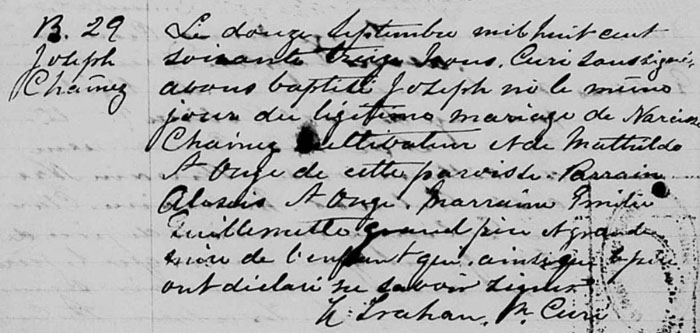 B. 29
Joseph
Chainez
Le douze Septembre mil huit cent
soixante treize Nous, Curé soussigné,
avons baptisé Joseph né le même
jour du légitime mariage de Narcisse
Chainez cultivateur & de Mathilde
St Onge de cette paroisse. Parrain
Alexis St Onge. Marraine Emilie
Guillemette grand père & grande
mère de l'enfant qui, ainsi que le père
ont déclaré ne savoir signer
Trahan, Ptre Curé